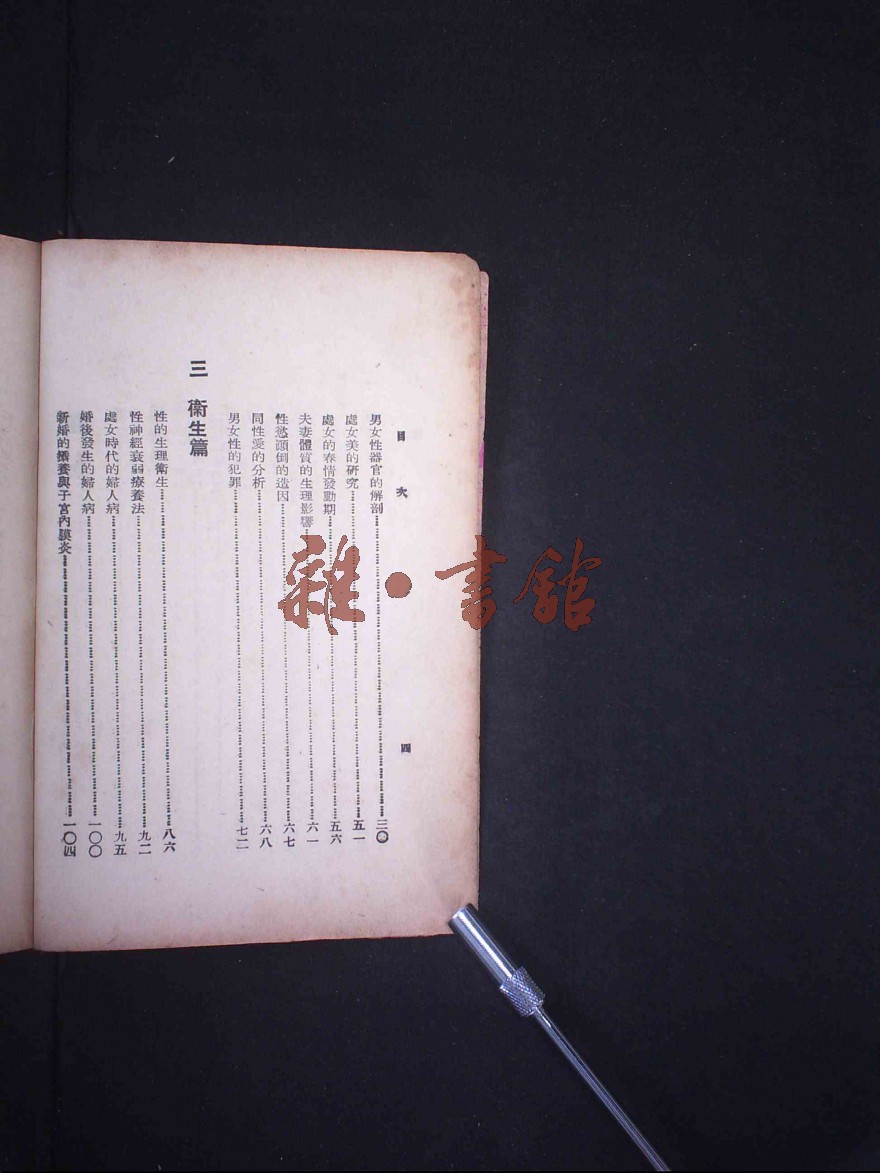 目次
四
男女性器官的解剖……三〇
處女美的研究……五一
處女的春情發動期……五六
夫妻體質的生理影響……六一
性慾顚倒的造因……六七
同性愛的分析……六八
男女性的犯罪……七二
三 衞生篇
性的生理衞生……八六
性神經衰弱療養法……九二
處女時代的婦人病……九五
婚後發生的婦人病……一〇〇
新婚的攝養與子宮內膜炎……一〇四
雜·書館